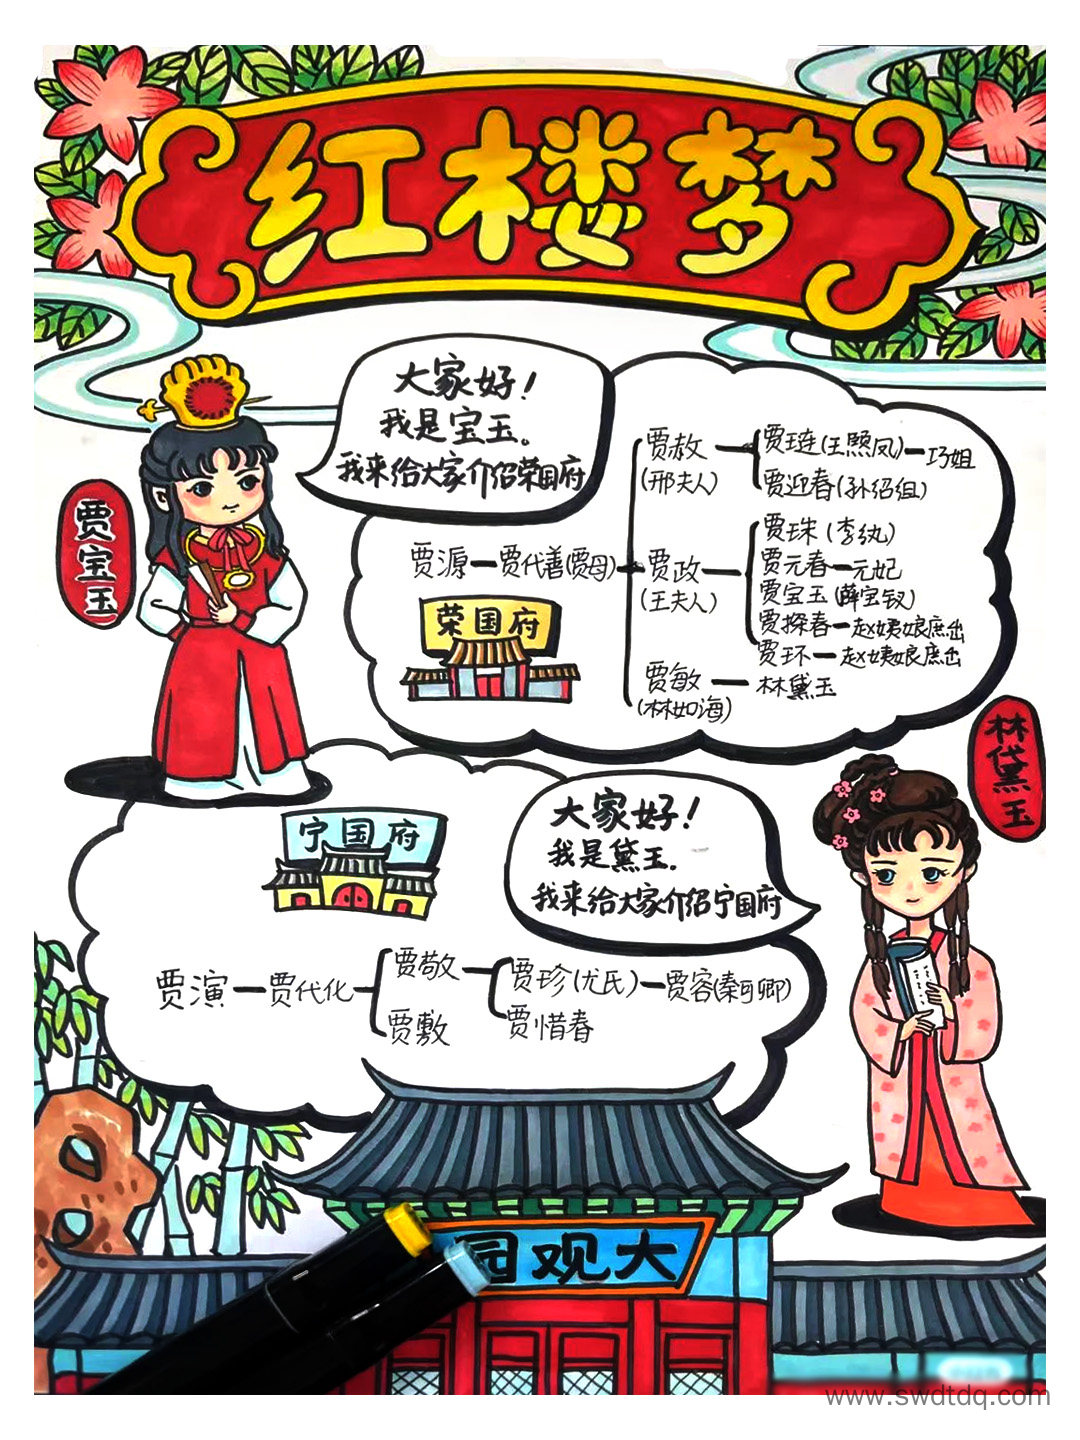 红楼梦
大家好!
我是宝玉。
我来给大家介绍荣国府
贾宝玉
贾源—贾代善(贾母)
荣国府
贾赦
(邢夫人)
贾琏(王熙凤)—巧姐
贾迎春(孙绍组)
贾政
(王夫人)
贾珠(李纨)
贾元春—元妃
贾宝玉(薛宝钗)
贾探春—赵姨娘庶出
贾环—赵姨娘庶出
贾敏
(林如海)
林黛玉
林黛玉
宁国府
大家好!
我是黛玉.
我来给大家介绍宁国府
贾演—贾代化
贾敬
贾敷
贾珍(尤氏)—贾容(秦可卿)
贾惜春
园观大
www.swdtdq.com